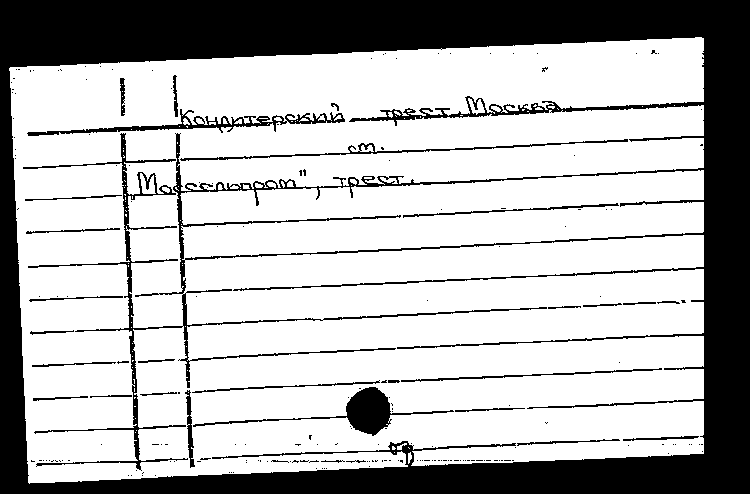 Кондитерский трест. Москва.
см.
„Моссельпром", трест.